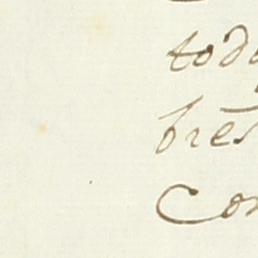 todo
bres
Con